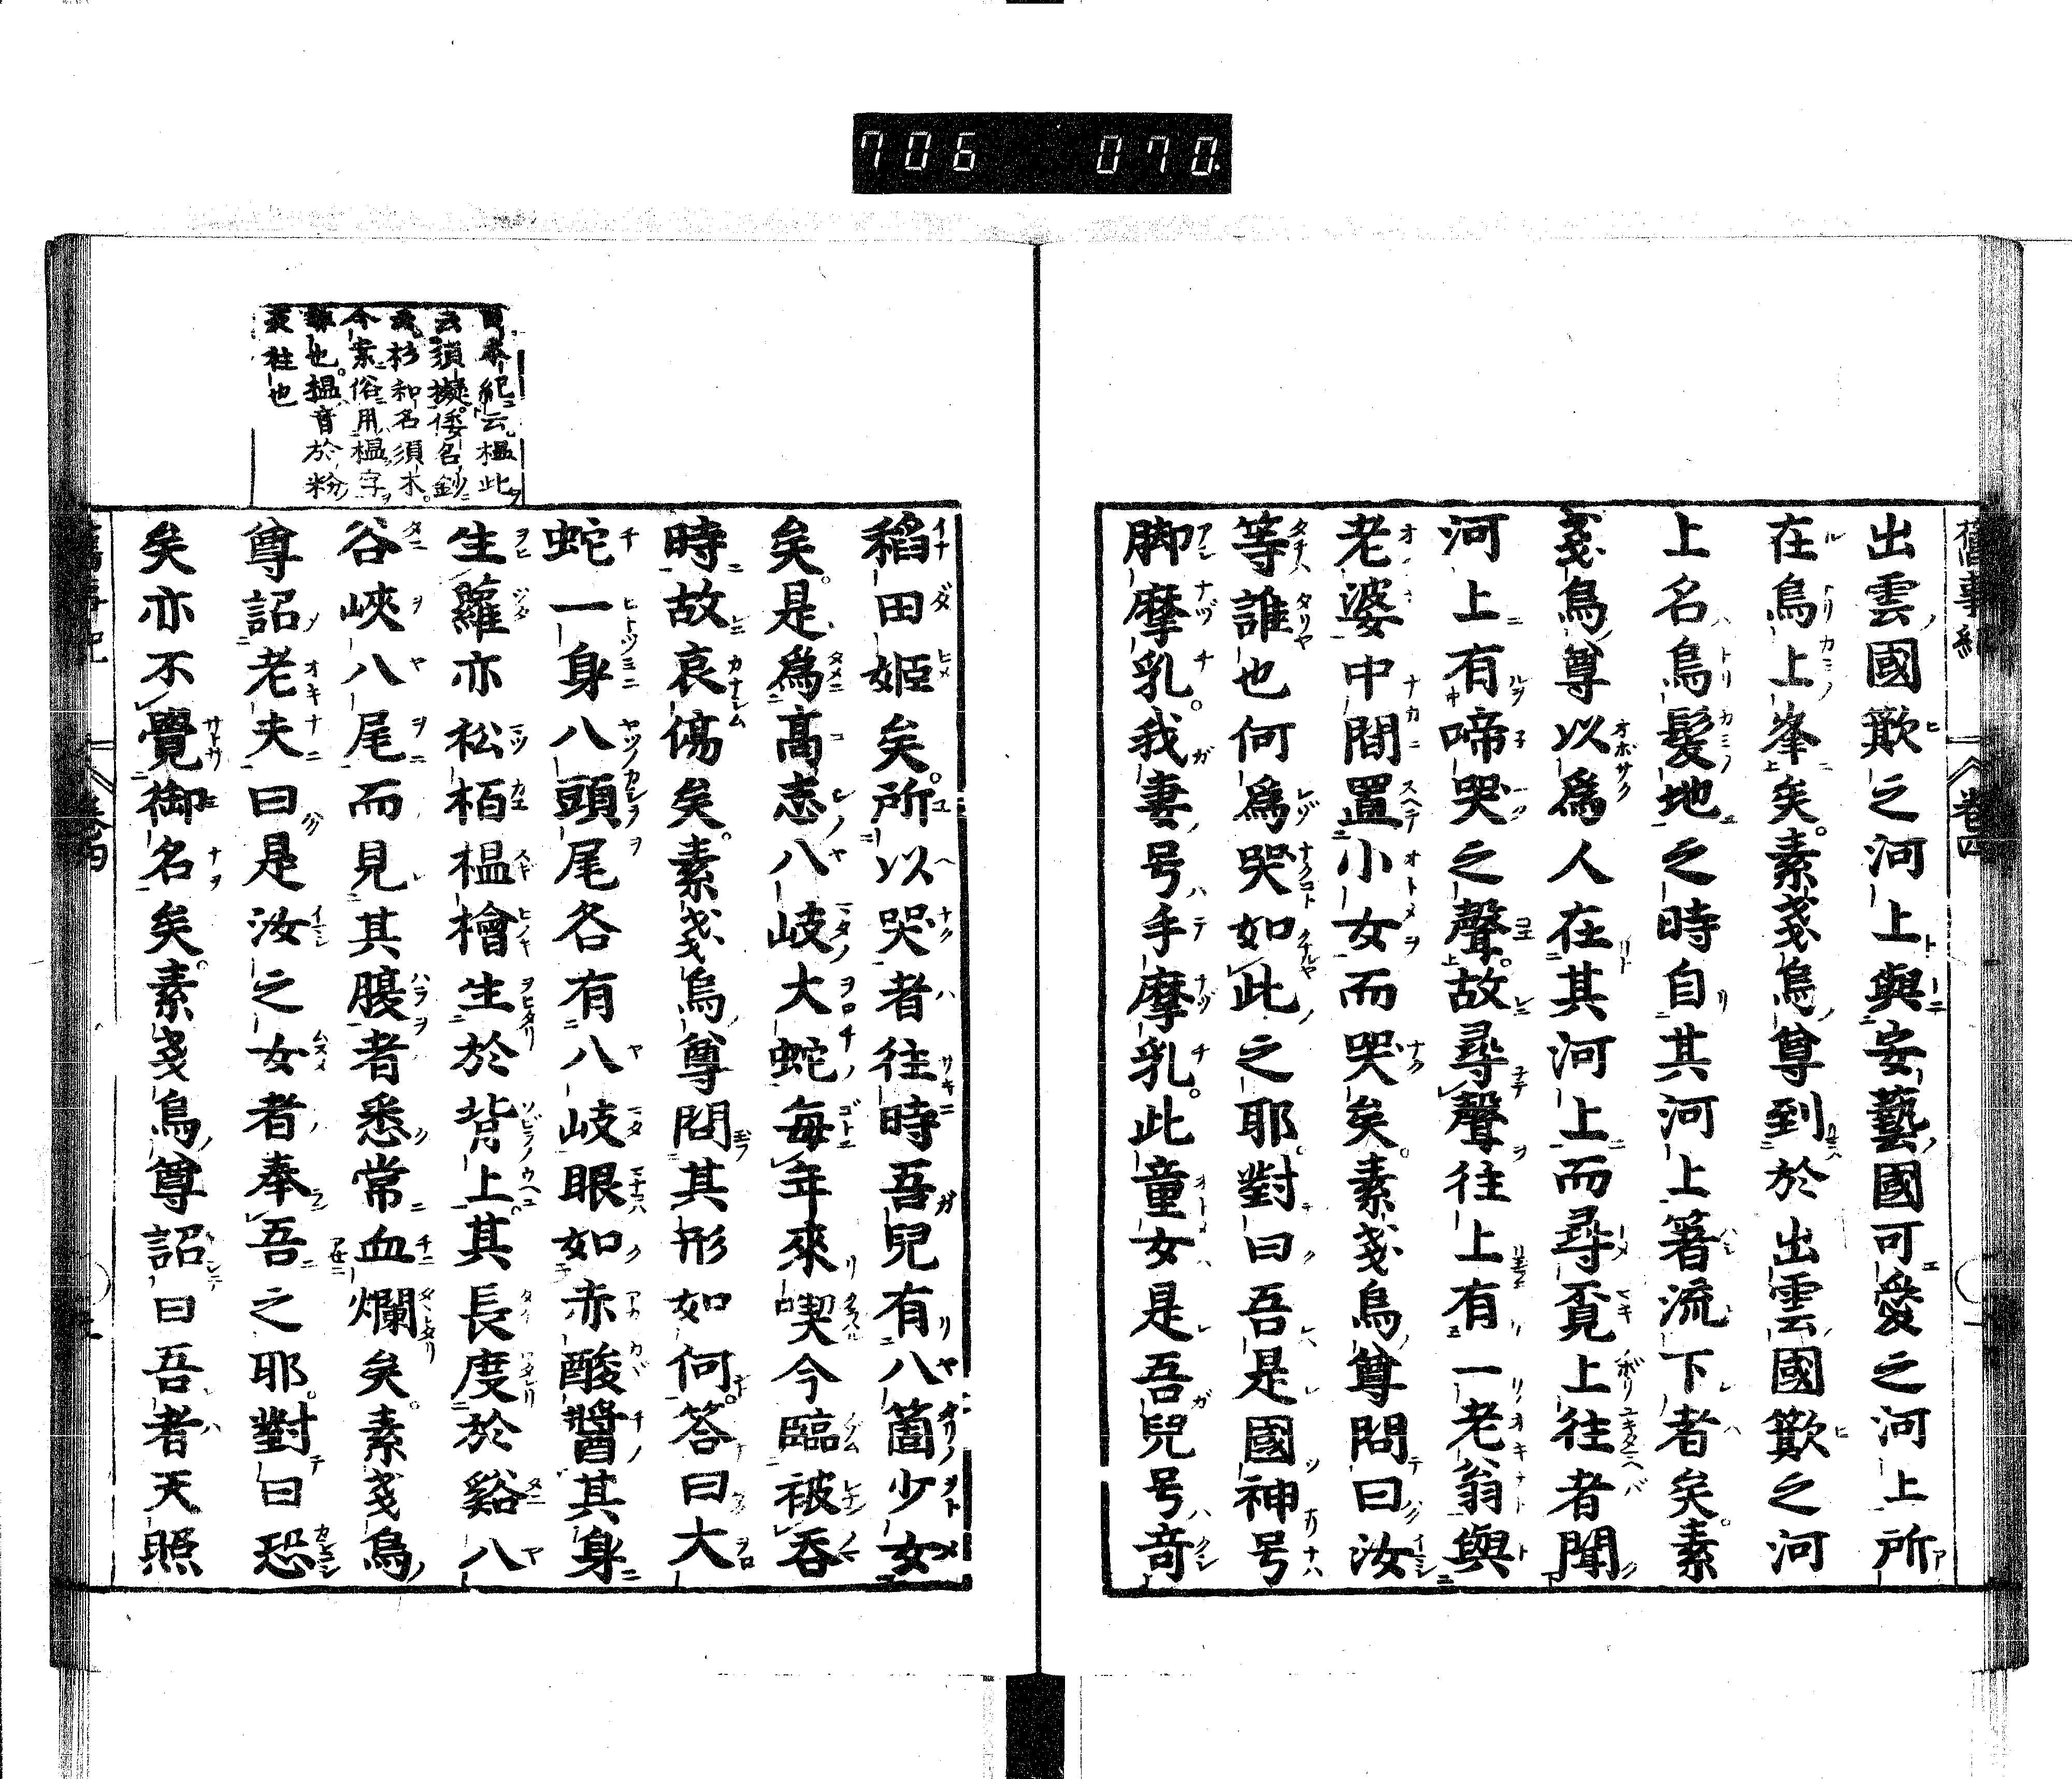 706 070
出雲國簸之河上與安藝國可愛之河上所
在鳥上峯矣素戔烏尊到於出雲國簸之河
上名鳥髮地之時自其河上箸流下者矣素
戔烏尊以為人在其河上而尋覓上往者聞
河上有啼哭之聲故尋聲往上有一老翁與
老婆中間置小女而哭矣素戔烏尊問曰汝
等誰也何為哭如此之耶對曰吾是國神号
脚摩乳我妻号手摩乳此童女是吾兒号奇
日本紀云榲此
云須擬倭名鈔
云杉和名須木
今案俗用榲字
也榲音於粉
反柱也
稻田姬矣所以哭者往時吾兒有八箇少女
矣是為高志八岐大蛇每年來喫今臨被吞
時故哀傷矣素戔烏尊問其形如何答曰大
蛇一身八頭尾各有八岐眼如赤酸醬其身
生蘿亦松栢榲檜生於背上其長度於谿八
谷峽八尾而見其腹者悉常血爛矣素戔烏
尊詔老夫曰是汝之女者奉吾之耶對曰恐
矣亦不覺御名矣素戔烏尊詔曰吾者天照